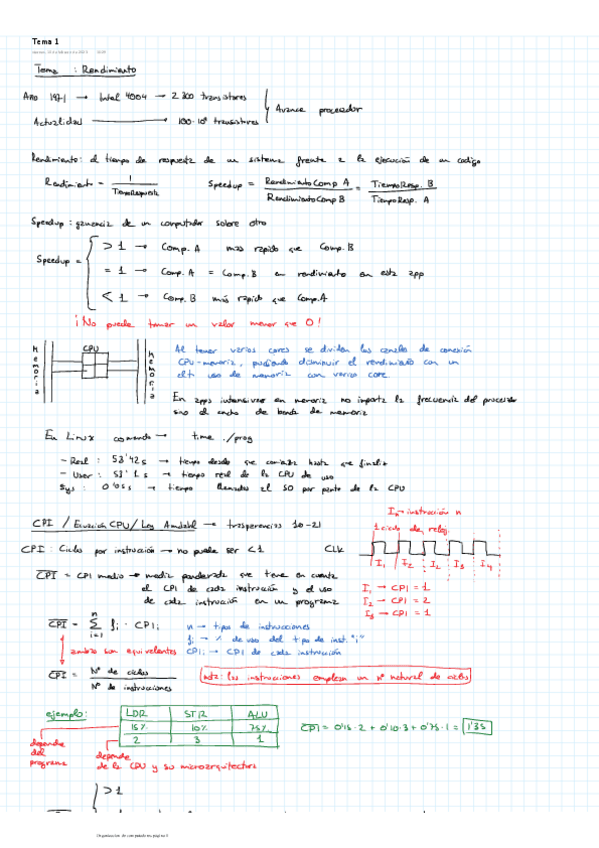 Tema 1
Tema : Rendimiento
Año 1971 → Intel 4004 → 2300 transistores
Avance procesador
Actualidad → 100·10⁹ transistores
Rendimiento: el tiempo de respuesta de un sistema frente a la ejecución de un codigo
Rendimiento = 1 / TiempoRespuesta
Speedup = RendimientoComp A / RendimientoComp B = TiempoResp. B / TiempoResp. A
Speedup : ganancia de un computador sobre otro
Speedup =
> 1 → Comp. A mas rapido que Comp. B
= 1 → Comp. A = Comp. B en rendimiento en esta app
< 1 → Comp. B más rapido que Comp. A
¡No puede tomar un valor menor que 0!
Memoria
CPU
Memoria
Al tener varios cores se dividen los canales de conexión
CPU-memoria, pudiendo disminuir el rendimiento con un
alto uso de memoria con varios core
En apps intensivas en memoria no importa la frecuencia del procesador
sino el ancho de banda de memoria
En Linux comando → time ./prog
- Real : 53'42s → tiempo desde que comienza hasta que finaliza
- User : → tiempo real de la CPU de uso
Sys : → tiempo llamadas al SO por parte de la CPU
CPI / Ecuacion CPU / Ley Amdahl → trasperencias 10-21
CPI : Ciclos por instrucción → no puede ser < 1
CLK
Iₙ → instrucción n
1 ciclo de reloj
I₁ I₂ I₂ I₃ I₄
I₁ → CPI = 1
I₂ → CPI = 2
I₃ → CPI = 1
CPI = CPI medio → media ponderada que tiene en cuenta
el CPI de cada instrucción y el uso
de cada instrucción en un programa
CPI = Σ fᵢ · CPIᵢ
n
i=1
n → tipo de instrucciones
fᵢ → % de uso del tipo de inst. "i"
CPIᵢ → CPI de cada instrucción
ambas son equivalentes
CPI = Nº de ciclos / Nº de instrucciones
Nota: las instrucciones emplean un nº natural de ciclos
ejemplo:
LDR STR ALU
15% 10% 75%
2 3 1
CPI = 0'15·2 + 0'10·3 + 0'75·1 = 1'35
depende
del
programa
depende
de la CPU y su microarquitectura
> 1